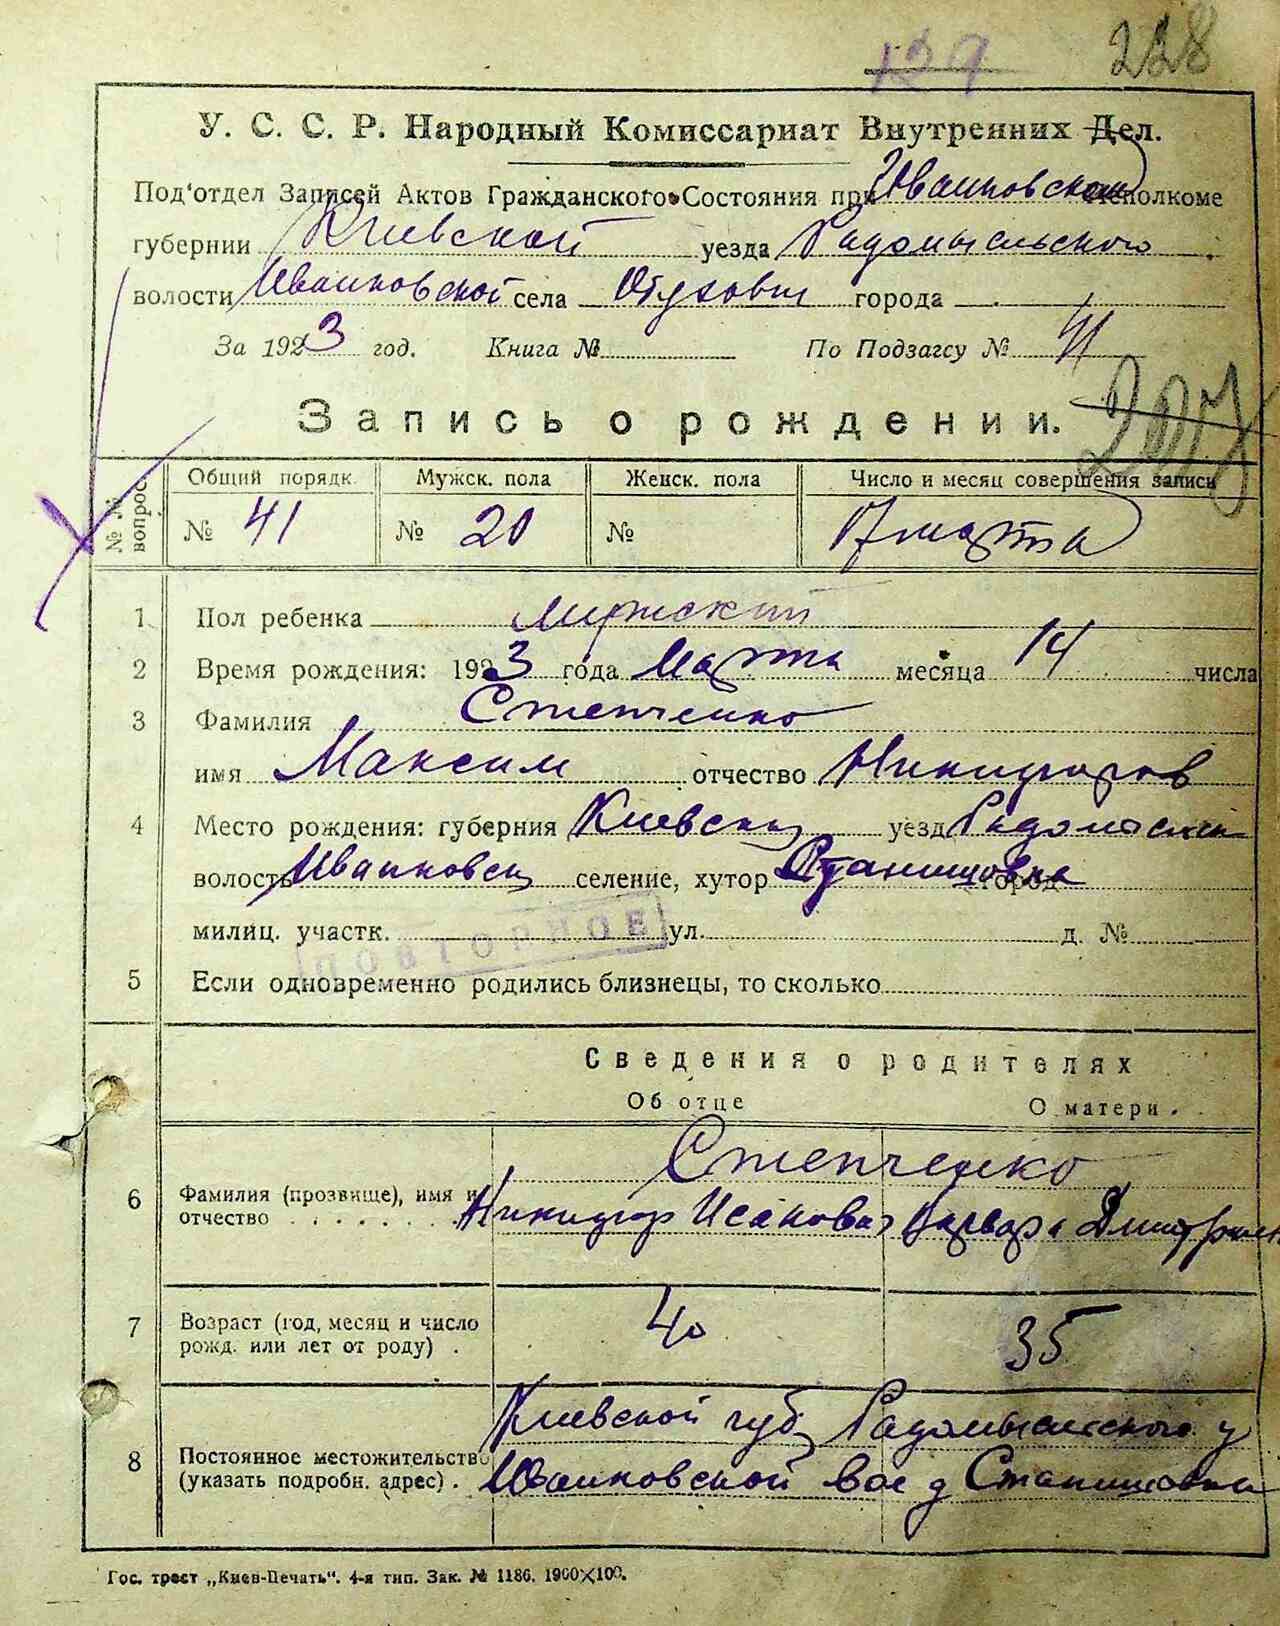 129 228
У. С. С. Р. Народный Комиссариат Внутренних Дел.
Под'отдел Записей Актов Гражданского Состояния при Иванковском исполкоме
губернии Киевской уезда Радомысльского
волости Иванковской села Обуховичи города
За 1923 год. Книга № По Подзагсу № 41
Запись о рождении. 207
№№ вопрос. Общий порядк. Мужск. пола Женск. пола Число и месяц совершения записи
№ 41 № 20 № 17 марта
1 Пол ребенка Мужский
2 Время рождения: 1923 года Марта месяца 14 числа
3 Фамилия Степченко
имя Максим отчество Никифоров
4 Место рождения: губерния Киевской уезд
волость Иванковск селение, хутор Станишовка город
милиц. участк. ул. д. №
ПОВТОРНОЕ
5 Если одновременно родились близнецы, то сколько
Сведения о родителях
Об отце О матери.
Степченко
6 Фамилия (прозвище), имя и
отчество . . . . . . . Никифор Исакович Варвара
7 Возраст (год, месяц и число
рожд. или лет от роду) . 40 35
Киевской губ Радомысльского у
8 Постоянное местожительство
(указать подробн. адрес) . Иванковской вол д Станишовка
Гос. трест „Киев-Печать“. 4-я тип. Зак. № 1186. 1900×100.